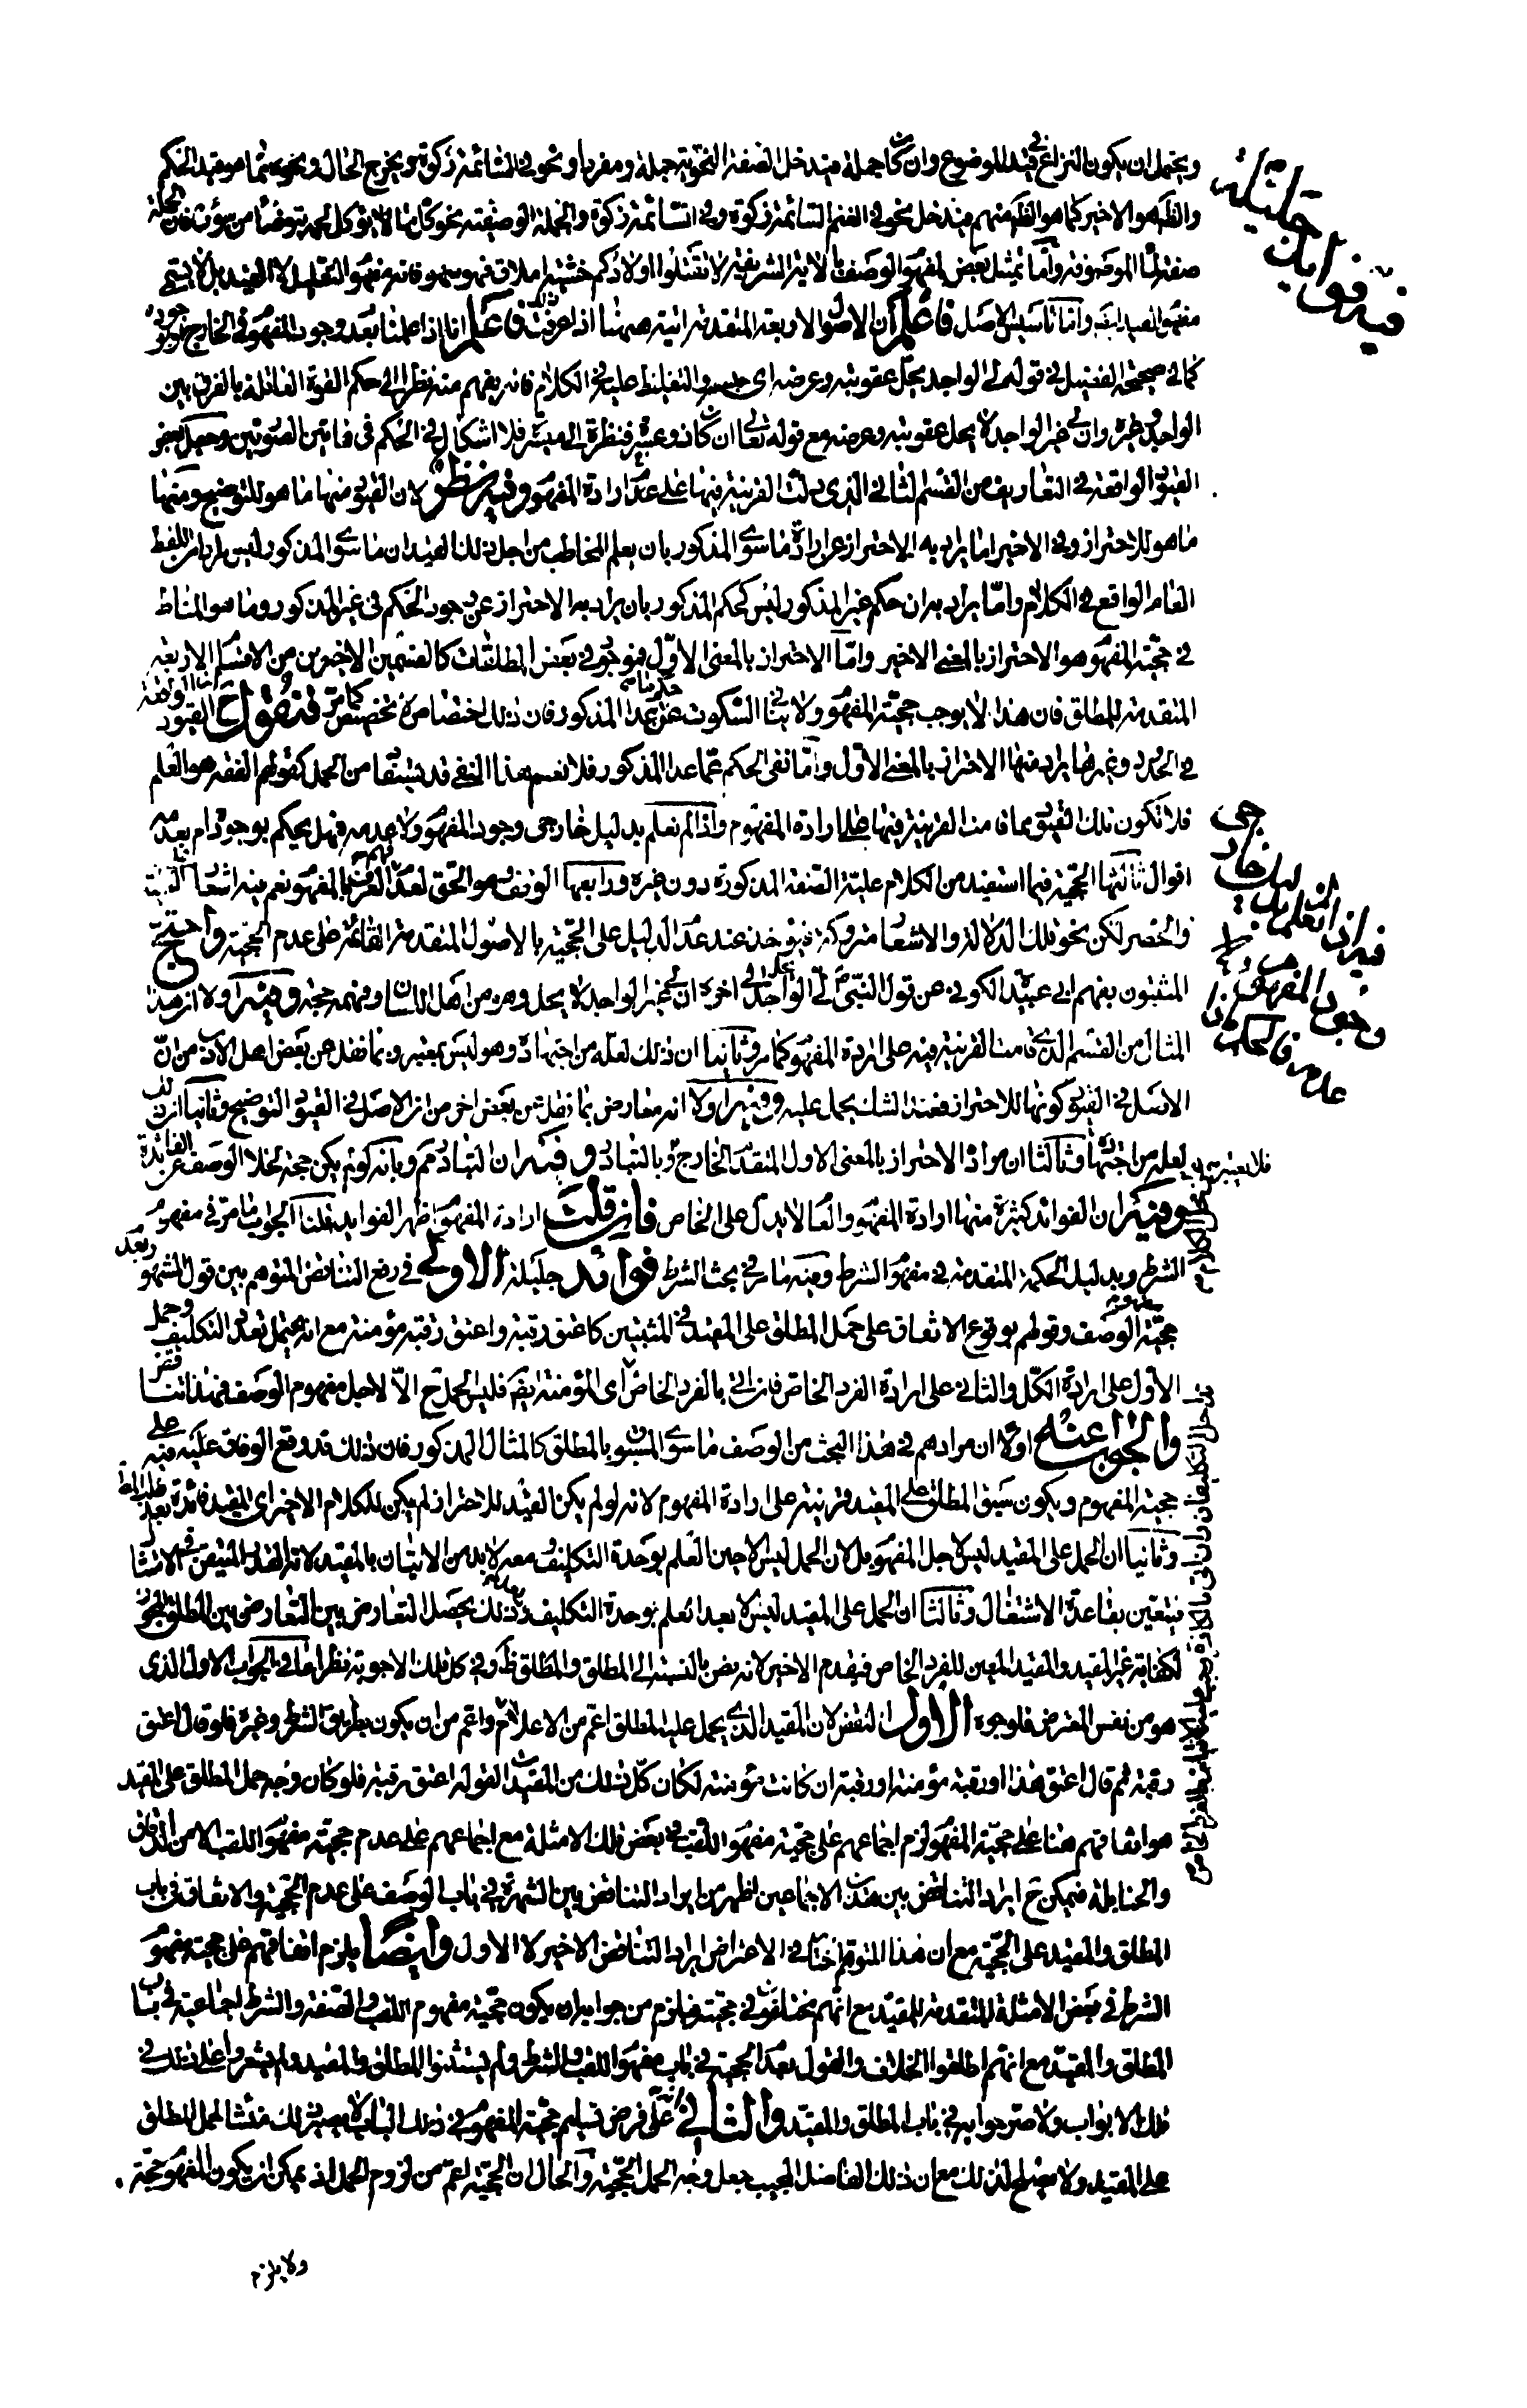 ويحتمل ان يكون النزاع في قيد الموضوع وان كان جملة فيدخل الصفة النحوية جملة ومفردا ونحو في السائمة زكوة ويخرج الحال ونحوه مما هو قيد الحكم
والظاهر هو الاخير كما هو الظاهر منهم فيدخل نحو في الغنم السائمة زكوة وفي السائمة زكوة والجملة الوصفية نحو كل ما لا يؤكل لحمه يتوضأ من سؤره فان الجملة
صفة لما الموصوفة واما تمثيل بعض لمفهوم الوصف بالاية الشريفة لا تقتلوا اولادكم خشية املاق فهو سهو فانه مفهوم التعليل لا القيد بل لا يسمى
مفهوم الصيد ايضا واما تاسيس الاصل فاعلم ان الاصول الاربعة المتقدمة اتية ههنا اذا عرفت ذلك فاعلم انا اذا علمنا بعد وجود المفهوم في الخارج بوجوده
كما في صحيحة الفضيل في قوله لي الواجد يحل عقوبته وعرضه اي حبسه والتغليظ عليه في الكلام فانه يفهم منه نظرا الى حكم القوة العاقلة بالفرق بين
الواجد وغيره وان لي غير الواجد لا يحل عقوبته وعرضه مع قوله تعالى ان كان ذو عسرة فنظرة الى ميسرة فلا اشكال في الحكم في هاتين الصورتين وجعل بعض
القيود الواقعة في التعاريف من القسم الثاني الذي دلت القرينة فيها على عدم ارادة المفهوم وفيه نظر لان القيود منها ما هو للتوضيح ومنها
ما هو للاحتراز وفي الاخير اما يراد به الاحتراز عن ارادة ما سوى المذكور بان يعلم المخاطب من اجل ذلك القيد ان ما سوى المذكور ليس مراد من اللفظ
العام الواقع في الكلام واما يراد به ان حكم غير المذكور ليس كحكم المذكور بان يراد به الاحتراز عن وجود الحكم في غير المذكور وما هو المناط
في حجية المفهوم هو الاحتراز بالمعنى الاخير واما الاحتراز بالمعنى الاول فموجود في بعض المطلقات كالقسمين الاخيرين من الاقسام الاربعة
المتقدمة للمطلق فان هذا لا يوجب حجية المفهوم ولا ينافي السكوت عن حكم ما عدا المذكور فان ذلك اختصاص لا تخصيص كما مر فنقول ح القيود الواقعة
في الحدود وغيرها يراد منها الاحتراز بالمعنى الاول واما نفى الحكم عما عدا المذكور فلا نعم هذا النفي قد يستفا من الحمل كقولهم الفقه هو العلم
فلا تكون تلك القيود مما قامت القرينة فيها على ارادة المفهوم واذا لم نعلم بدليل خارجي وجود المفهوم ولا عدمه فهل يحكم بوجوده ام بعدمه
اقوال ثالثها الحجية فيما استفيد من الكلام علية الصفة المذكورة دون غيره ورابعها الوقف هو الحق لعدم فهم العرف المفهوم نعم فيه اشعار
والحصر لكن نحو تلك الدلالة والاشعار متروكة فيؤخذ عند عدم الدليل على الحجية بالاصول المتقدمة القائمة على عدم الحجية واحتج
المثبتون بفهم ابي عبيدة الكوفي عن قول النبي ص لي الواجد الى اخره ان لي غير الواجد لا يحل وهو من اهل اللسان وفهمه حجة وفيه اولا ان هذا
المثال من القسم الذي قامت القرينة فيه على ارادة المفهوم كما مر وثانيا ان ذلك لعله من اجتهاده وهو ليس بمعتبر وبما نقل عن بعض اهل الادب من ان
الاصل في القيود كونها للاحتراز فعند الشك يحمل عليه وفيه اولا انه معارض بما نقل عن بعض اخر من ان الاصل في القيود التوضيح وثانيا ان ذلك
لعله من اجتهاده فلا يعتبر وثالثا ان مراده الاحتراز بالمعنى الاول المتقدم الخارج وبالتبادر وفيه ان التبادر مم وبانه لو لم يكن حجة لخلا الوصف عن الفائدة
وفيه ان الفوائد كثيرة منها ارادة المفهوم والعام لا يدل على الخاص فان قلت ارادة المفهوم اظهر الفوايد قلنا الجواب ما مر في مفهوم
الشرط وبدليل الحكمة المتقدمة في مفهوم الشرط وفيه ما مر في بحث الشرط فوائد جليلة الاولى في رفع التناقض المتوهم بين قول المشهور بعدم
حجية مفهوم الوصف وقولهم بوقوع الاتفاق على حمل المطلق على المقيد في المثبتين كاعتق رقبة واعتق رقبة مؤمنة مع انه يحتمل تعدد التكليف وحمل
الاول على ارادة الكل والثاني على ارادة الفرد الخاص فان اتى بالفرد الخاص اي المؤمنة ايضا فليس الحمل ح الا لاجل مفهوم الوصف فهذا تناقض
والجواب عنه اولا ان مرادهم في هذا البحث من الوصف ما سوى المسبوق بالمطلق كالمثال المذكور فان ذلك قد وقع الوفاق عليه فيه على
حجية المفهوم ويكون سبق المطلق على المقيد قرينة على ارادة المفهوم لانه لو لم يكن القيد للاحتراز لم يكن للكلام الاخير اي المقيد فائدة بعد ذكر المطلق
وثانيا ان الحمل على المقيد ليس لاجل المفهوم بل لان الحمل ليس الا حين العلم بوحدة التكليف ومعه لابد من الاتيان بالمقيد لانه القدر المتيقن في الامتثال
فيتعين بقاعدة الاشتغال وثالثا ان الحمل على المقيد ليس الا بعد العلم بوحدة التكليف وبعد ذلك يحصل التعارض بين التعارض بين المطلق المجوز
لكفاية غير المقيد والمقيد المعين للفرد الخاص فيقدم الاخير لانه نص بالنسبة الى المطلق والمطلق ظ وفي كل تلك الاجوبة نظر اما في الجواب الاول الذي
هو من نفس المعترض فلوجوه الاول النقض لان المقيد الذي يحمل عليه المطلق اعم من الاعلام واعم من ان يكون بطريق الشرط وغيره فلو قال اعتق
رقبة ثم قال اعتق هذا او رقبة مؤمنة او رقبة ان كانت مؤمنة لكان كل ذلك من المقيدات لقوله اعتق رقبة فلو كان وجه حمل المطلق على المقيد
هو اتفاقهم هنا على حجية المفهوم لزم اجماعهم على حجية مفهوم اللقب في بعض تلك الامثلة مع اجماعهم على عدم حجية مفهوم اللقب الا من الدقاق
والحنابلة فيمكن ح ايراد التناقض بين هذين الاجماعين اظهر من ايراد التناقض بين الشهرة في باب الوصف على عدم الحجية والاتفاق في باب
المطلق والمقيد على الحجية مع ان هذا المتوهم اختار في الاعتراض ايراد التناقض الاخير لا الاول وايضا يلزم اتفاقهم على حجية مفهوم
الشرط في بعض الامثلة المتقدمة للمقيد مع انهم مختلفون في حجيته فيلزم من جوابه ان يكون حجية مفهوم اللقب والصفة والشرط اجماعية في باب
المطلق والمقيد مع انهم اطلقوا الخلاف والقول بعدم الحجية في باب مفهوم اللقب والشرط ولم يستثنوا المطلق والمقيد ولم يشعروا على ذلك في
تلك الابواب ولا صرحوا به في باب المطلق والمقيد والثاني انه على فرض تسليم حجية المفهوم في ذلك الباب لا يصير ذلك منشأ لحمل المطلق
على المقيد ولا مصلح لذلك مع ان ذلك الفاضل المجيب جعل وجه الحمل الحجية والحال ان الحجية اعم من لزوم الحمل اذ يمكن ان يكون المفهوم حجة
ولا يلزم
فيه فوائد جليلة